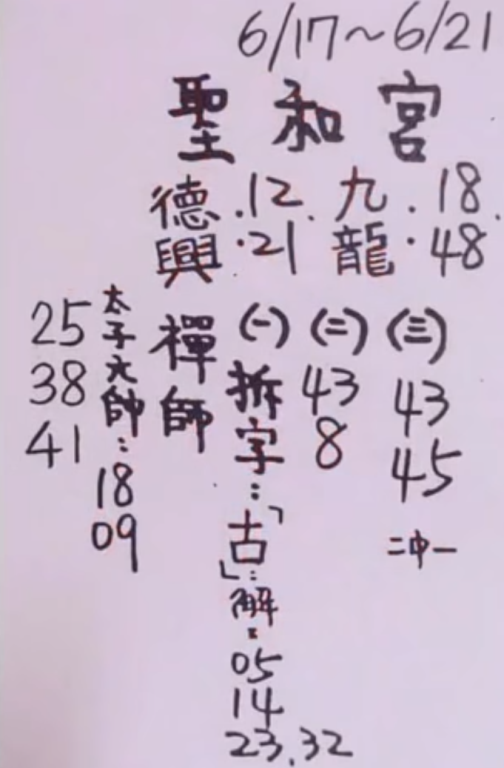 6/17~6/21
聖和宮
九龍.18.48.
德興.12.21.
(三)43 45 二中一
(二)43 8
(一)拆字:「古」:解:05 14 23.32
禪師
太子元帥:18 09
25 38 41